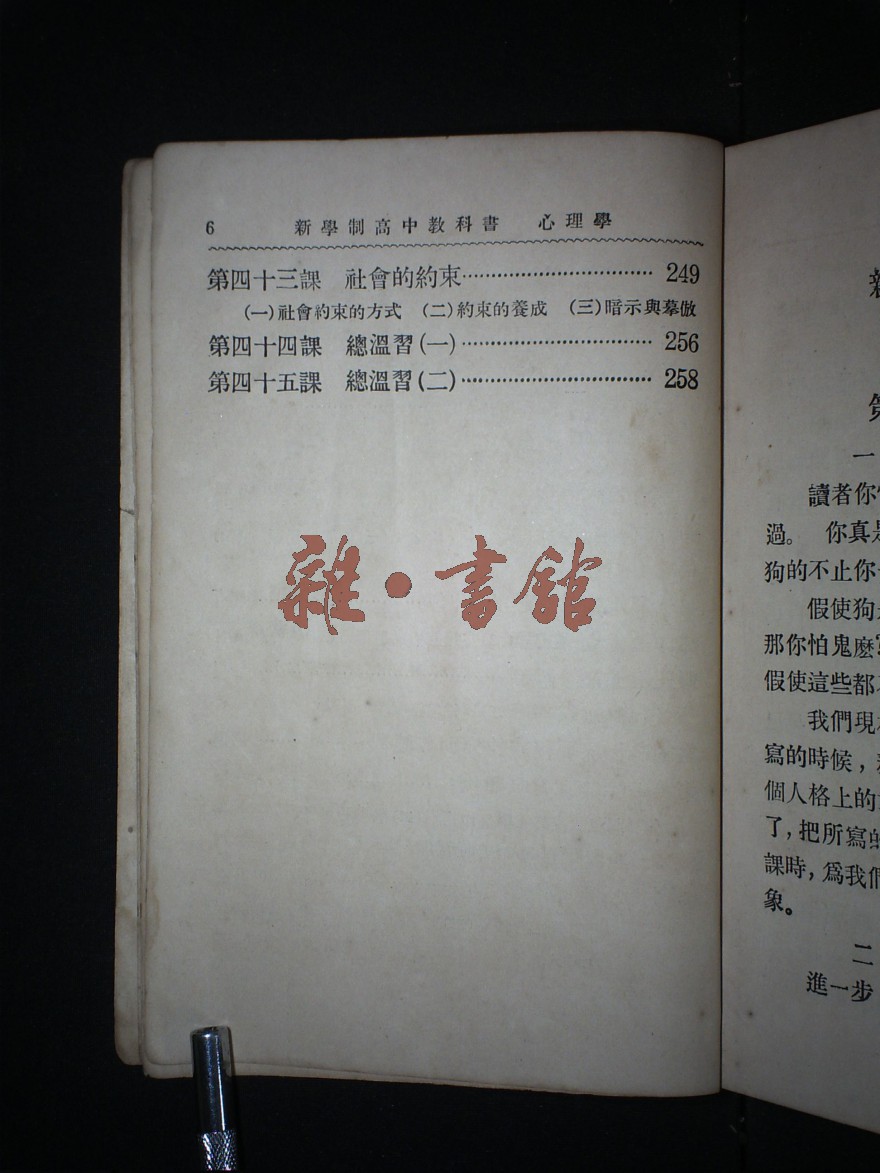 6 新學制高中教科書 心理學
第四十三課 社會的約束 249
(一)社會約束的方式 (二)約束的養成 (三)暗示與摹倣
第四十四課 總溫習(一) 256
第四十五課 總溫習(二) 258
雜·書館
一
讀者你
過。 你真是
狗的不止你
假使狗
那你怕鬼麼
假使這些都
我們現
寫的時候,
個人格上的
了,把所寫的
課時,爲我們
象。
二
進一步